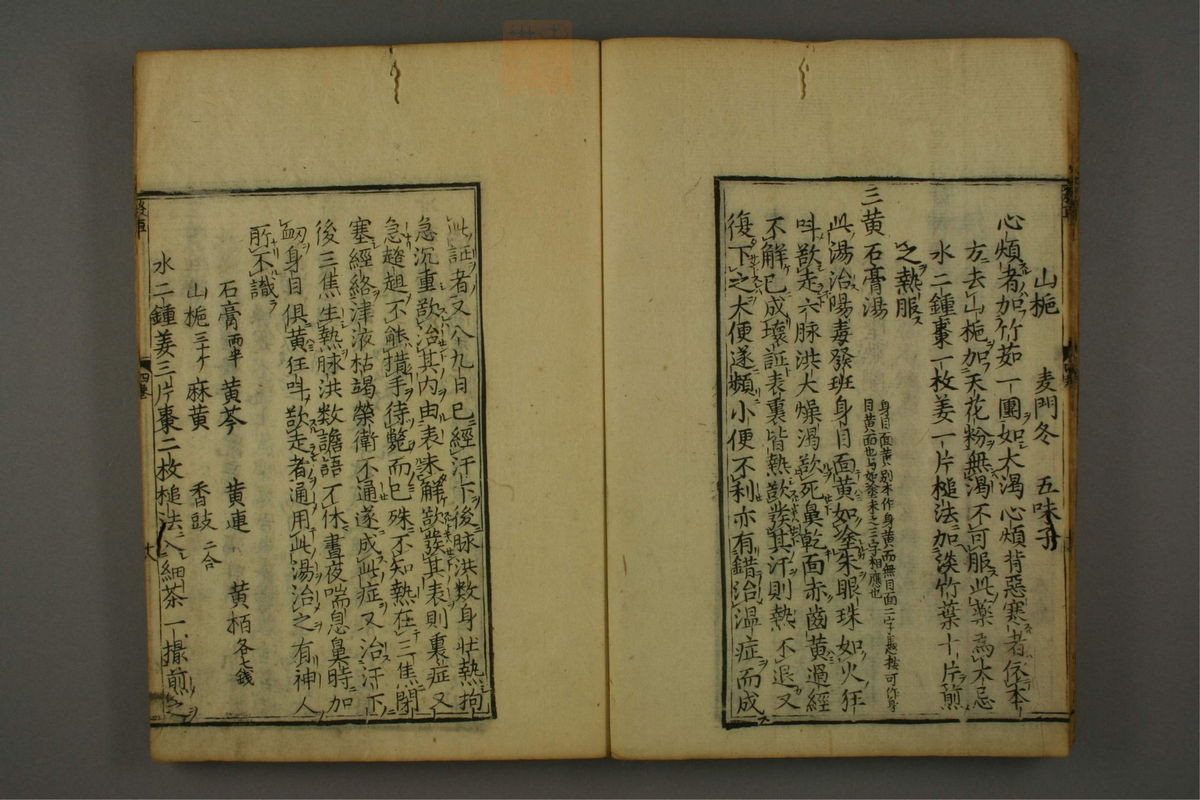 山梔　麦門冬　五味子
心煩者加竹茹一團如大渴心煩背惡寒者依本
方去山梔加天花粉無渴不可服此薬為大忌
水二鍾棗一枚姜一片槌法加淡竹葉十片煎
之熱服
三黄石膏湯
身目面黄別本作身黄而無目面二字
目黄面也与如金朱之三字相應也
此湯治陽毒發班身目面黄如金朱眼珠如火狂
叫欲走六脉洪大燥渴欲死鼻乾面赤齒黄過經
不解已成壊証表裏皆熱欲發其汗則熱不退又
復下之大便遂頻小便不利亦有錯治温症而成
此証者又八九日已經汗下後脉洪数身壮熱拘
急沉重欲治其内由表未解欲發其表則裏症又
急趦趄不能措手待斃而已殊不知熱在三焦閉
塞經絡津液枯竭榮衛不通遂成此症又治汗下
後三焦生熱脉洪数譫語不休晝夜喘息鼻時加
衂身目俱黄狂叫欲走者通用此湯治之有神人
所不識
石膏兩半　黄芩　黄連　黄栢各七錢
山梔三十ケ　麻黄　香豉二合
水二鍾姜三片棗二枚槌法入細茶一撮煎之
四巻